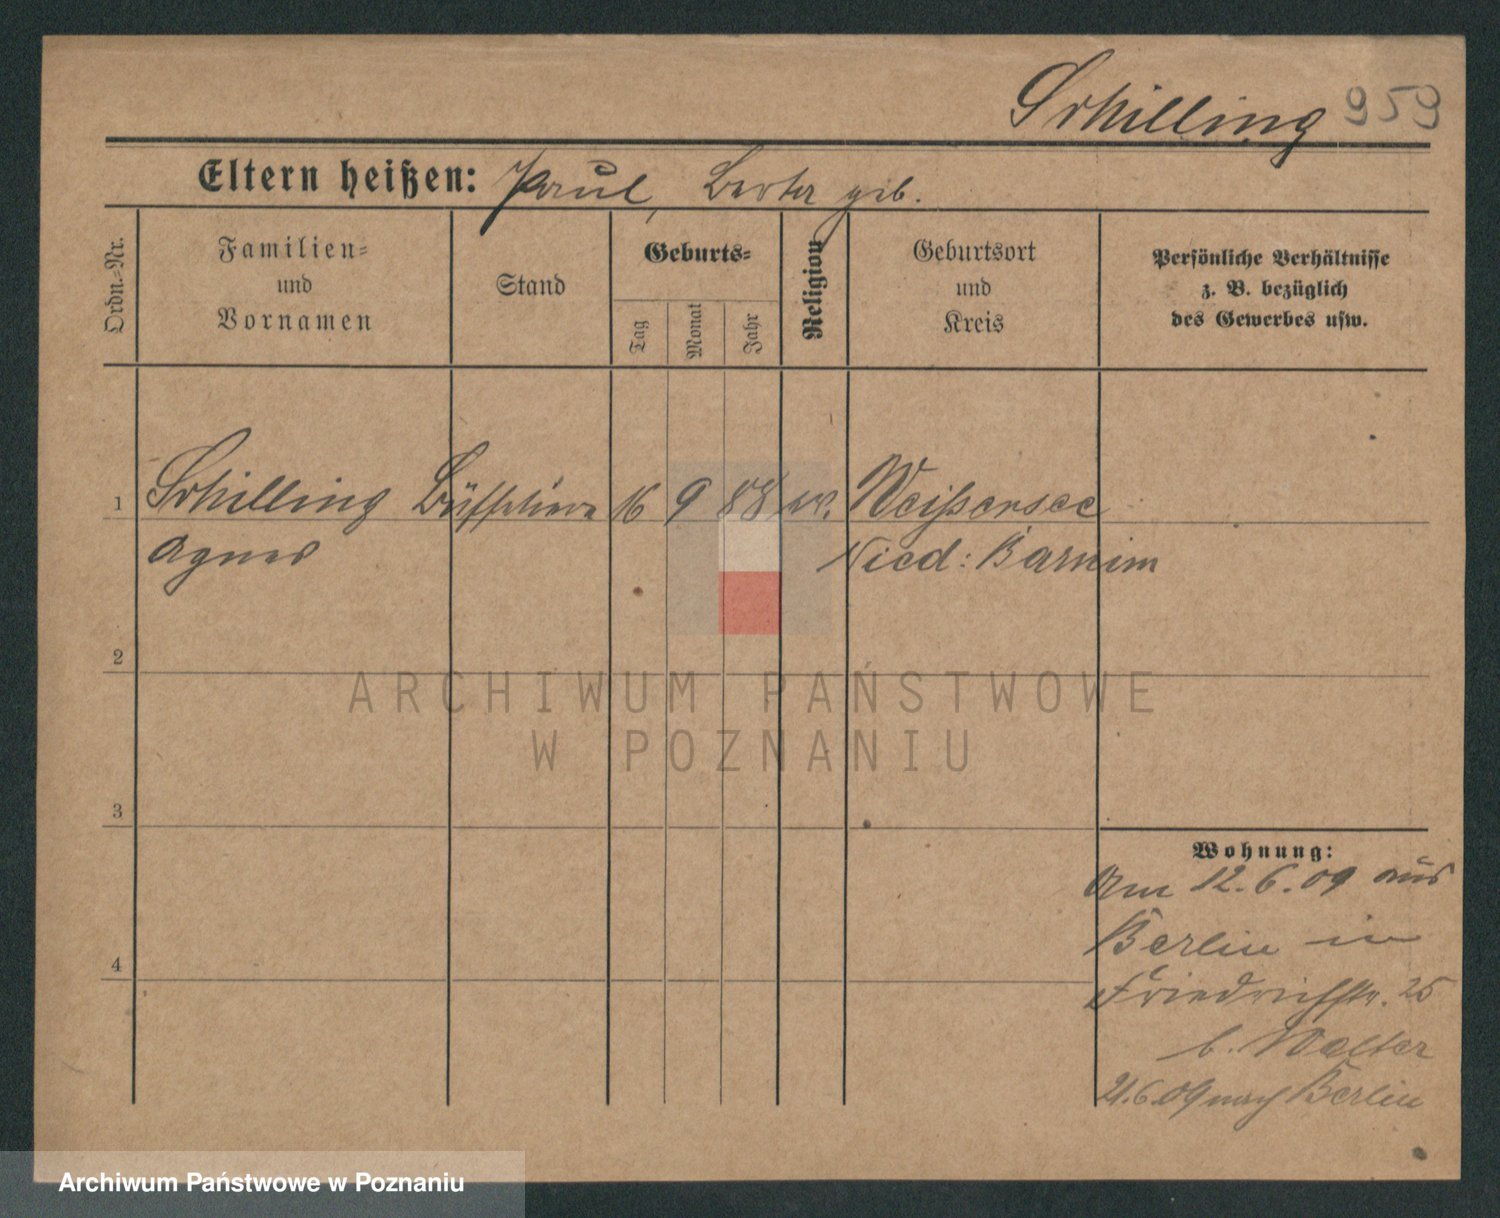 Schilling 959
Eltern heißen: Paul, Berta geb.
Ordn.=Nr.
Familien=
und
Vornamen
Stand
Geburts=
Tag
Monat
Jahr
Religion
Geburtsort
und
Kreis
Persönliche Verhältnisse
z. B. bezüglich
des Gewerbes usw.
1 Schilling 16 9 88 ev. Weißensee
Agnes Nied: Barnim
2
3
4
ARCHIWUM PAŃSTWOWE
W POZNANIU
Wohnung:
Am 12.6.09 aus
Berlin in
Friedrichstr. 25
b. Walter
21.6.09 nach Berlin
Archiwum Państwowe w Poznaniu